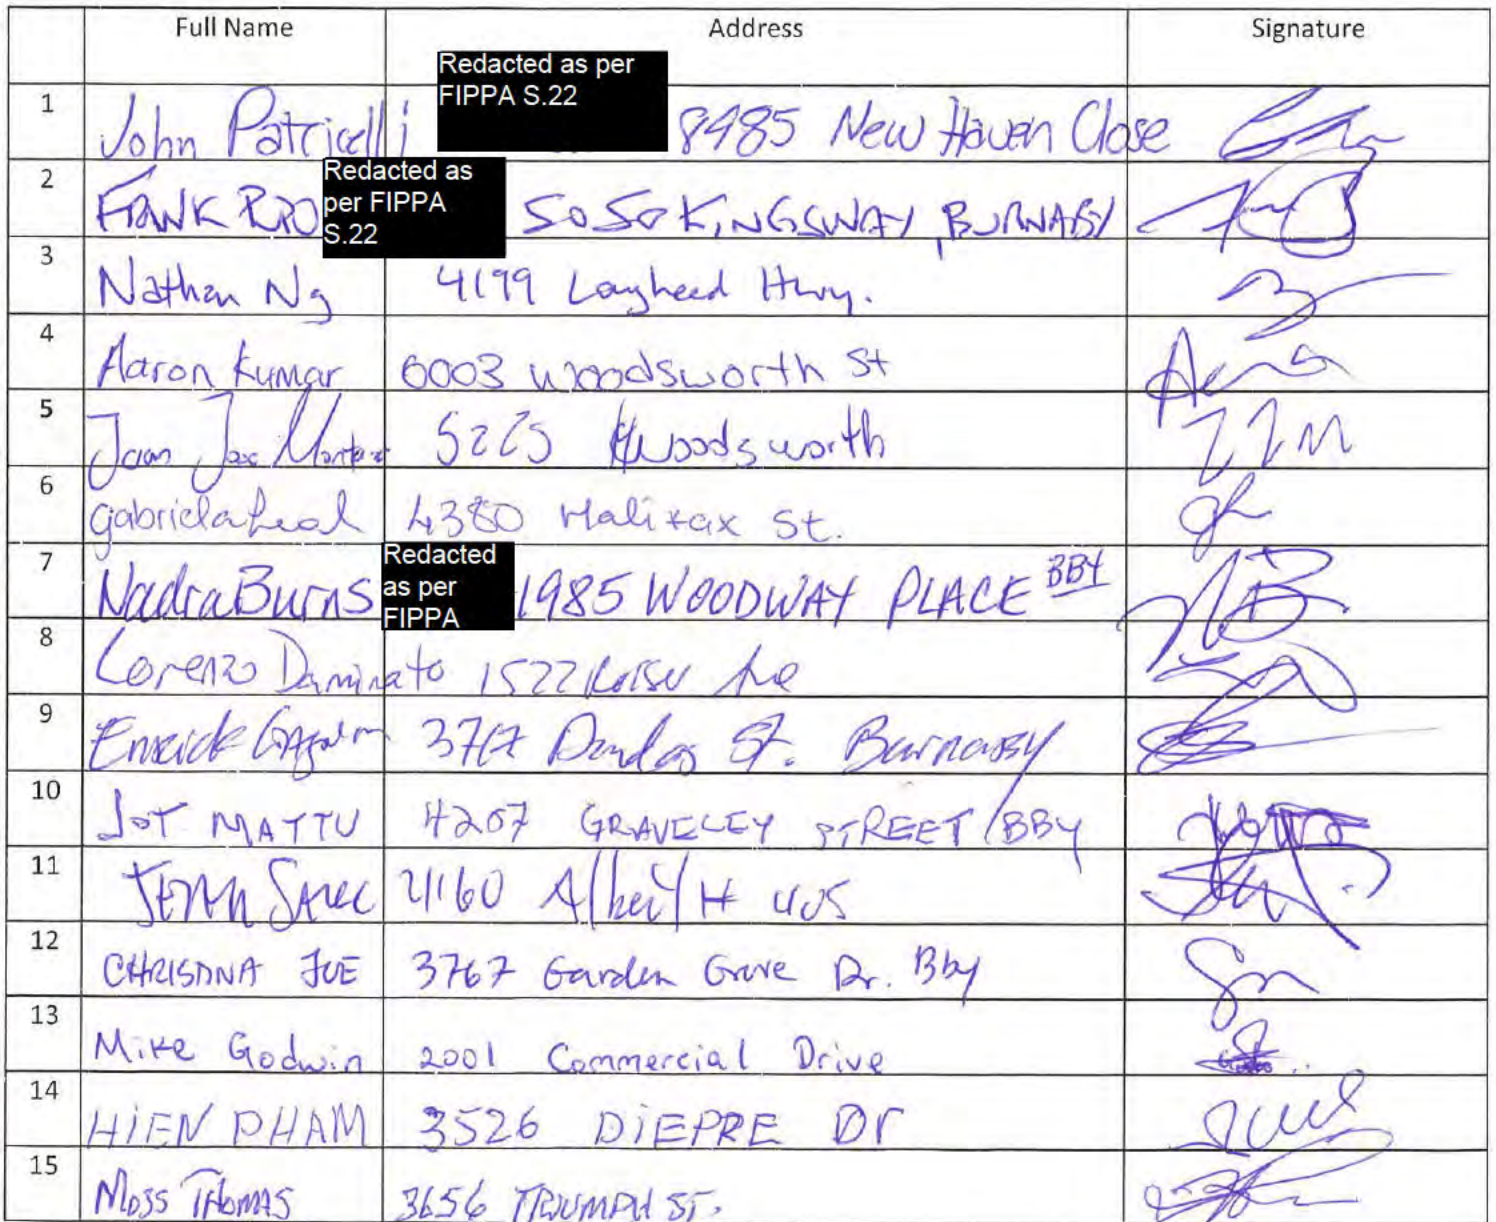 Full Name Address Signature
Redacted as per
FIPPA S.22
1 John Patricelli 8985 New Haven Close
Redacted as
per FIPPA
S.22
2 FRANK 5050 KINGSWAY, BURNABY
3 Nathan Ng 4199 Lougheed Hwy.
4 Aaron Kumar 6003 Woodsworth St
5 Juan Jose 5225 Woodsworth
6 gabriela Leal 4380 Halifax St.
Redacted
as per
FIPPA
7 Nadra Burns 1985 WOODWAY PLACE BBY
NB
8 Lorenzo Daminato 1522
9 3767 Dundas St. Burnaby
10 JOT MATTU 4207 GRAVELEY STREET / BBY
11 4160 Albert # 405
12 CHRISTINA JUE 3767 Garden Grove Dr. Bby
13 Mike Godwin 2001 Commercial Drive
14 HIEN PHAM 3526 DIEPPE Dr
15 MOSS THOMAS 3656 TRIUMPH ST.